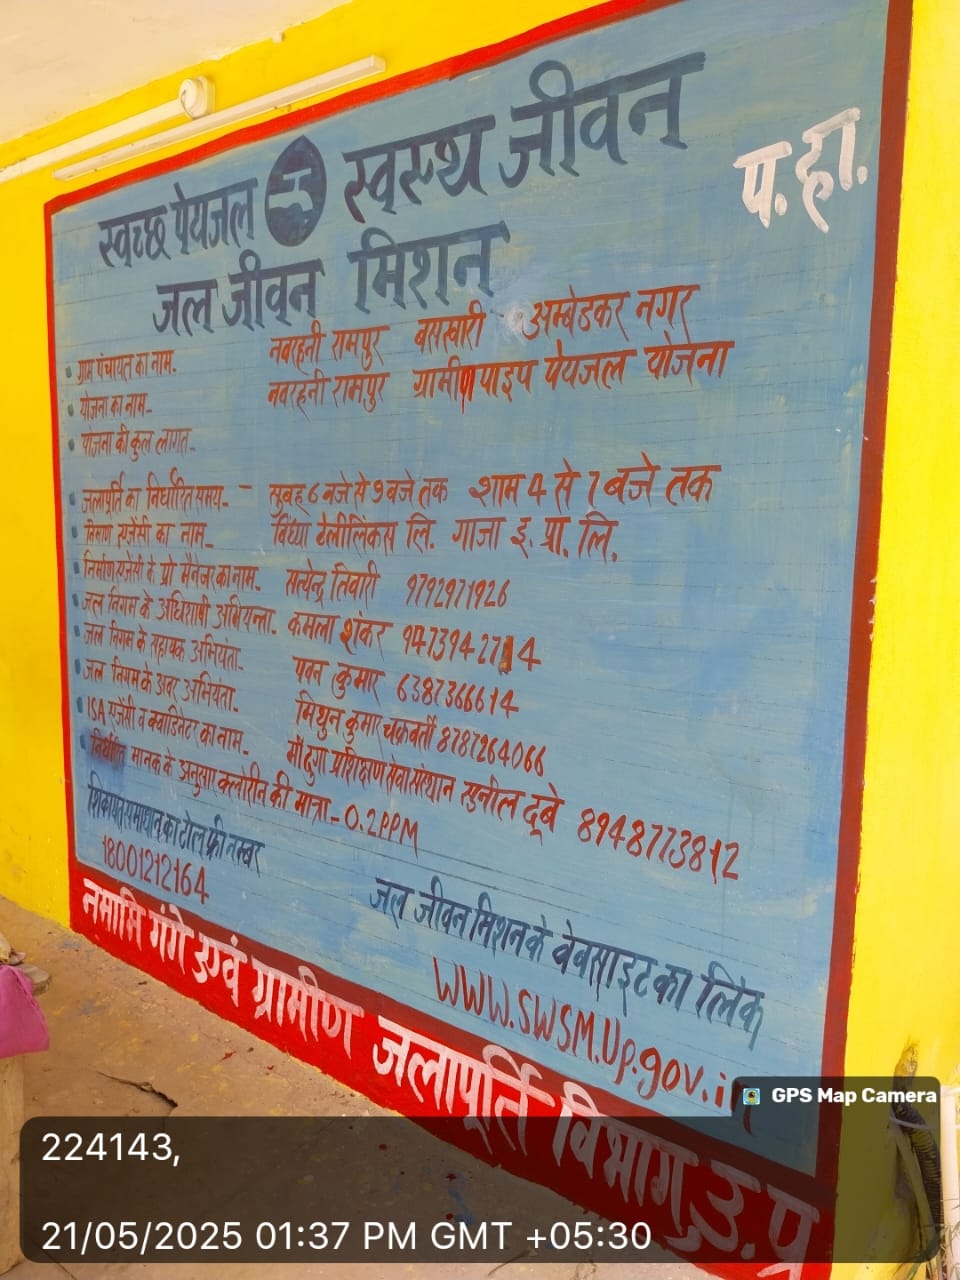 स्वच्छ पेयजल स्वस्थ जीवन
प. हा.
जल जीवन मिशन
ग्राम पंचायत का नाम- नवरहनी रामपुर बसखारी अम्बेडकर नगर
योजना का नाम- नवरहनी रामपुर ग्रामीण पाइप पेयजल योजना
योजना की कुल लागत-
जलापूर्ति का निर्धारित समय- सुबह 6 बजे से 9 बजे तक शाम 4 से 7 बजे तक
निर्माण एजेंसी का नाम- विंध्या टेलीलिंकस लि. गाजा इ. प्रा. लि.
निर्माण एजेंसी के प्रो मैनेजर का नाम- सत्येन्द्र तिवारी 9792971926
जल निगम के अधिशाषी अभियन्ता- कमला शंकर 9473942714
जल निगम के सहायक अभियंता- पवन कुमार 6387366614
जल निगम के अवर अभियंता- मिथुन कुमार चक्रवर्ती 8787264066
ISA एजेंसी व क्वाडिनेटर का नाम- माँ दुर्गा प्रशिक्षण सेवा संस्थान सुनील दूबे 8948773812
निर्धारित मानक के अनुसार क्लोरीन की मात्रा- 0.2PPM
शिकायत समाधान का टोल फ्री नम्बर
18001212164
जल जीवन मिशन के वेबसाइट का लिंक
WWW.SWSM.Up.gov.in
नमामि गंगे एवं ग्रामीण जलापूर्ति विभाग उ.प्र
GPS Map Camera
224143,
21/05/2025 01:37 PM GMT +05:30